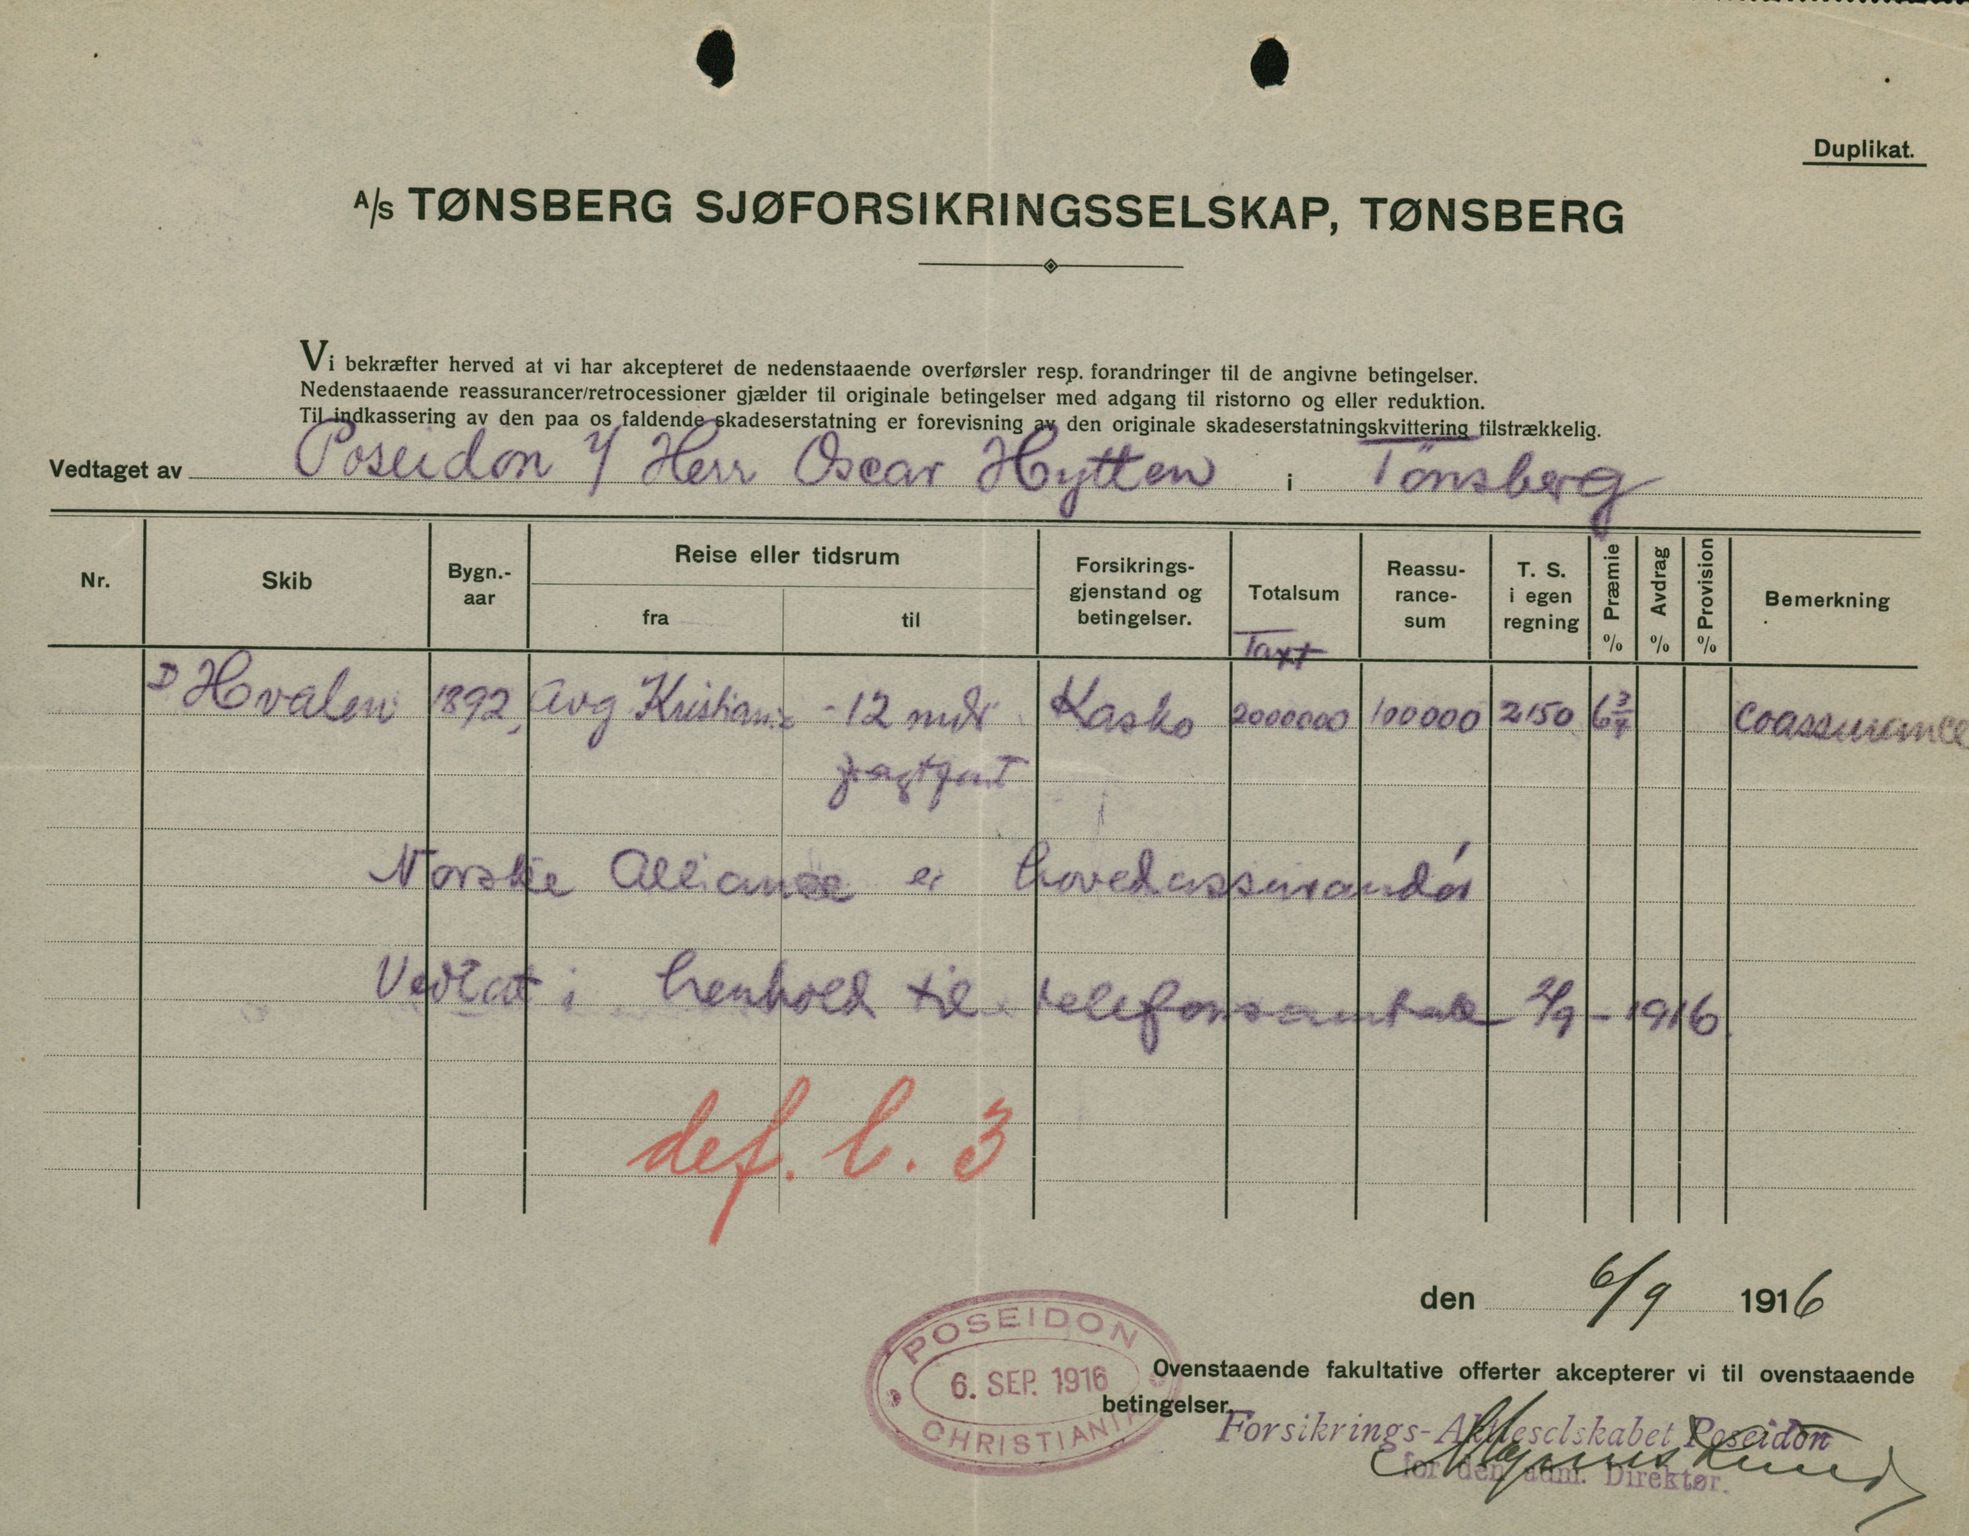 Duplikat.
A/S TØNSBERG SJØFORSIKRINGSSELSKAP, TØNSBERG
Vi bekræfter herved at vi har akcepteret de nedenstaaende overførsler resp. forandringer til de angivne betingelser.
Nedenstaaende reassurancer/retrocessioner gjælder til originale betingelser med adgang til ristorno og eller reduktion.
Til indkassering av den paa os faldende skadeserstatning er forevisning av den originale skadeserstatningskvittering tilstrækkelig.
Vedtaget av Poseidon v/ Herr Oscar Hytten i Tønsberg
Nr. Skib Bygn.-aar Reise eller tidsrum fra til Forsikrings-gjenstand og betingelser. Totalsum Reassu-rance-sum T. S. i egen regning Præmie % Avdrag % Provision % Bemerkning
Taxt
D Hvalen 1892, avg Kristiania - 12 mdr Kasko 2000000 100000 2150 6 3/4 coassurance
fragtfart
Norske Alliance er hovedassurandør
Vedtat i henhold til telefonsamtale 2/9 - 1916.
def. l. 3
den 6/9 1916
POSEIDON
6. SEP. 1916
CHRISTIANIA
Ovenstaaende fakultative offerter akcepterer vi til ovenstaaende
betingelser.
Forsikrings-Aktieselskabet Poseidon
for den adm. Direktør.